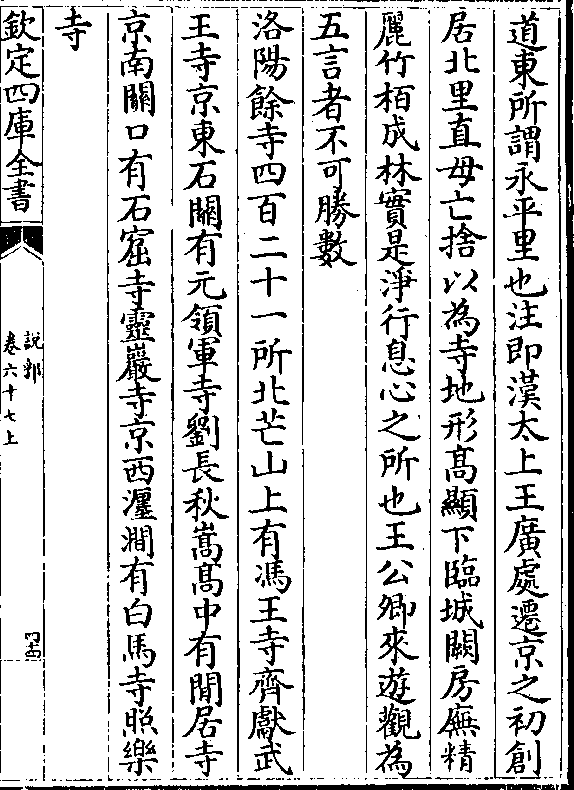 道東所謂永平里也注即漢太上王廣處遷京之初創
居北里直母亡捨以為寺地形髙顯下臨城闕房廡精
麗竹栢成林實是淨行息心之所也王公卿來遊觀為
五言者不可勝數
洛陽餘寺四百二十一所北芒山上有馮王寺齊獻武
王寺京東石關有元領軍寺劉長秋嵩髙中有閒居寺
京南關口有石窟寺靈巖寺京西瀍澗有白馬寺照樂
寺
欽定四庫全書
說郛
卷六十七上